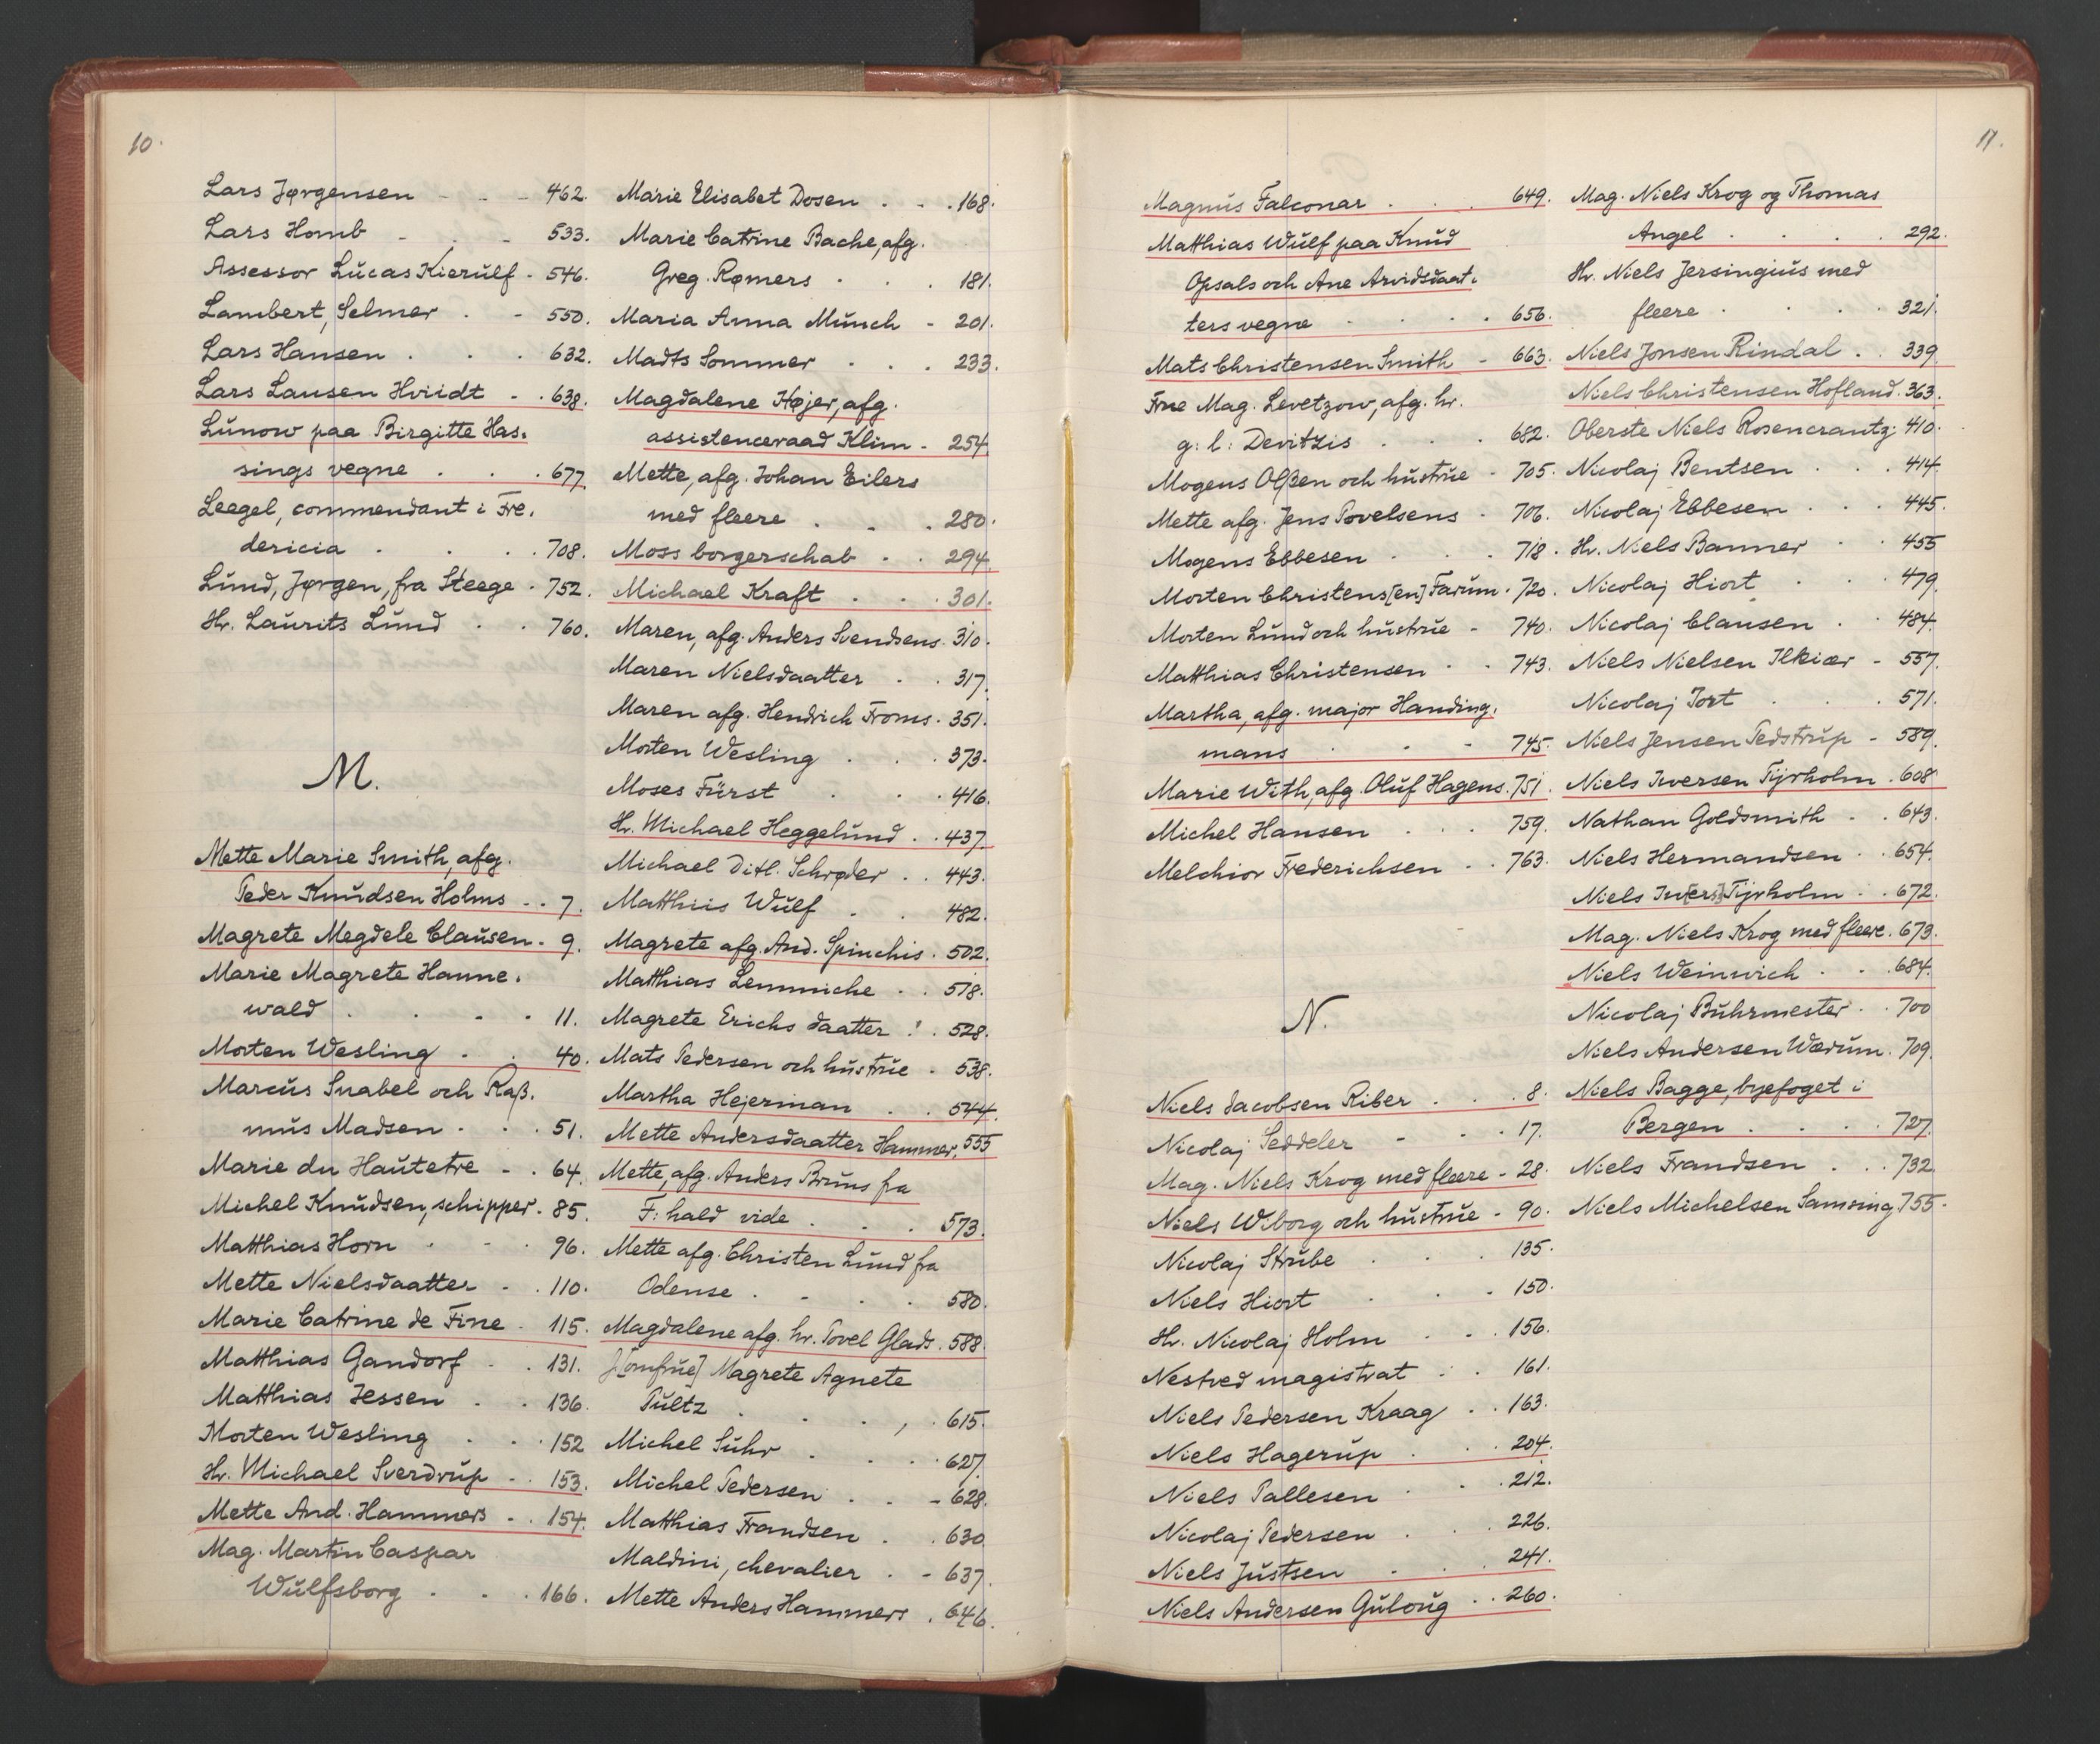 10.
Lars Jørgensen - - - 462.
Lars Homb - . - 533.
Assessor Lucas Kierulf - 546.
Lambert, Selmer . - 550.
Lars Hansen . . . 632.
Lars Lausen Hviidt - . 638.
Lunow paa Birgitte Has-
sings vegne . . . 677.
Leegel, commendant i Fre-
dericia . . . . 708.
Lund, Jørgen, fra Steege . 752.
Hr. Laurits Lund . . 760.
M.
Mette Marie Smith, afg.
Peder Knudsen Holms . . 7.
Magrete Megdele Clausen . 9.
Marie Magrete Hanne-
wald . . . . 11.
Morten Wesling . . 40.
Marcus Snabel och Raß-
mus Madsen . . . 51.
Marie du Hautetre - . 64.
Michel Knudsen, schipper . 85.
Matthias Horn . - . 96.
Mette Nielsdaatter - . 110.
Marie Catrine de Fine . 115.
Matthias Gandorf . . 131.
Matthias Jessen . . 136.
Morten Wesling . . . 152
Hr. Michael Sverdrup . . 153.
Mette And. Hammers - . 154.
Mag. Martin Caspar
Wulfsborg . . . 166.
Marie Elisabet Dosen . . . 168.
Marie Catrine Bache, afg.
Greg. Rømers . . . 181.
Maria Anna Münch - 201.
Madts Sommer . . . 233.
Magdalene Højer, afg.
assistenceraad Klim - 254.
Mette, afg. Johan Eilers
med fleere . . . 280.
Moss borgerschab . . 294.
Michael Kraft . . . 301.
Maren, afg. Anders Svendsens . 310.
Maren Nielsdaatter . . 317.
Maren afg. Hendrich Froms . 351.
Morten Wesling . . . 373.
Moses Fürst . . . 416.
Hr. Michael Heggelund . . 437.
Michael Ditl. Schrøder . . 443.
Matthiis Wulf . . 482.
Magrete afg. And. Spinchis . 502.
Matthias Lemmiche . . 518.
Magrete Erichs daatter ! . 528.
Mats Pedersen och hustrue . 538.
Martha Hejerman . . 544.
Mette Andersdaatter Hammer. 555
Mette, afg. Anders Bruns fra
F: hald vide . . . 573.
Mette afg. Christen Lund fra
Odense . . . . 580.
Magdalene afg. hr. Povel Glads . 588.
J[omfrue] Magrete Agnete
Pültz . . . . 615.
Michel Suhr . . . 627.
Michel Pedersen . . - 628.
Matthias Frandsen . . 630.
Maldini, chevalier . - 637.
Mette Anders Hammers . 646.
11.
Magnus Falconar . . . 649.
Matthias Wulf paa Knud
Opsals och Ane Arvidsdaat-
ters vegne . . . . 656.
Mats Christensen Smith - 663.
Frue Mag. Levetzow, afg. hr.
g: l: Devitzis . . . 682.
Mogens Olßen och hustrue - 705.
Mette afg. Jens Povelsens . 706.
Mogens Ebbesen . . . 718.
Morten Christens[en] Farum . 720.
Morten Lund och hustrue - 740.
Matthias Christensen . . 743.
Martha, afg. major Handing-
mans . . - 745.
Marie With, afg. Oluf Hagens . 751.
Michel Hansen . . . 759.
Melchior Frederichsen . . 763.
N.
Niels Jacobsen Riber . . . 8.
Nicolaj Seddeler - . . 17.
Mag. Niels Krog med fleere - 28.
Niels Wiborg och hustrue - 90.
Nicolaj Strube . . . 135.
Niels Hiort . . . 150.
Hr. Nicolaj Holm . . . 156.
Nestved magistrat . . 161.
Niels Pedersen Kraag . . 163.
Niels Hagerup . . . 204.
Niels Pallesen . . . 212.
Nicolaj Pedersen . . . 226.
Niels Justsen . . . 241.
Niels Andersen Guloug . . 260.
Mag. Niels Krog og Thomas
Angel . . . . 292.
Hr. Niels Jersingius med
fleere . . . . 321.
Niels Jonsen Rindal . . 339.
Niels Christensen Hofland . 363.
Oberste Niels Rosencrantz . 410.
Nicolaj Bentsen . . . 414.
Nicolaj Ebbesen . . . 445.
Hr. Niels Banner . . 455
Nicolaj Hiort . . . 479.
Nicolaj Clausen . . 484.
Niels Nielsen Ilkiær - 557.
Nicolaj Tort . . . 571.
Niels Jensen Tedstrup - 589.
Niels Iversen Tyrholm . 608.
Nathan Goldsmith . . 643.
Niels Hermandsen . . 654.
Niels Iv[ers.] Tyrholm . . 672.
Mag. Niels Krog med fleere . 673.
Niels Weinwich . . . 684.
Nicolaj Buhrmester . . 700
Niels Andersen Wærum . 709.
Niels Bagge, byefoget i
Bergen . . . . 727.
Niels Frandsen . . . 732.
Niels Michelsen Samsing 755.